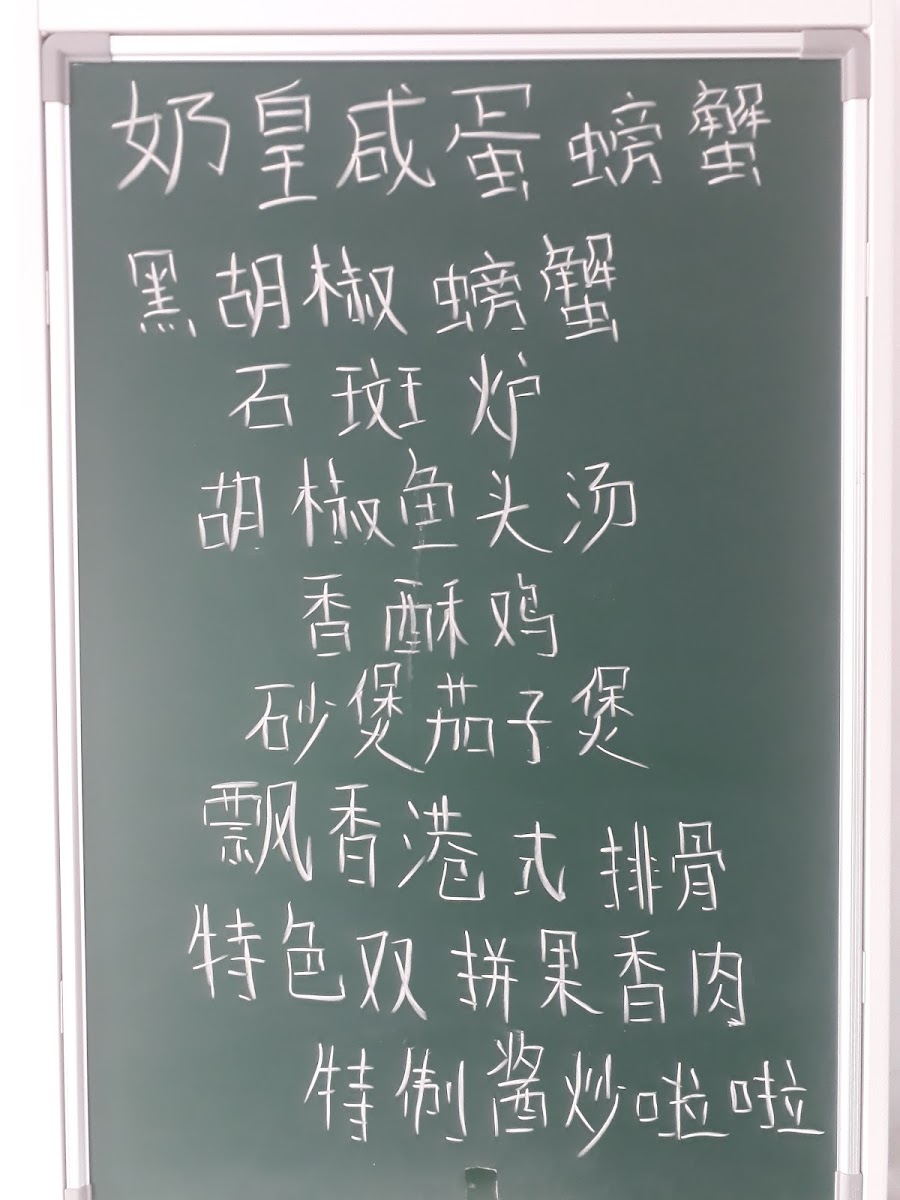 奶皇咸蛋螃蟹
黑胡椒螃蟹
石斑炉
胡椒鱼头汤
香酥鸡
砂煲茄子煲
飘香港式排骨
特色双拼果香肉
特制酱炒啦啦